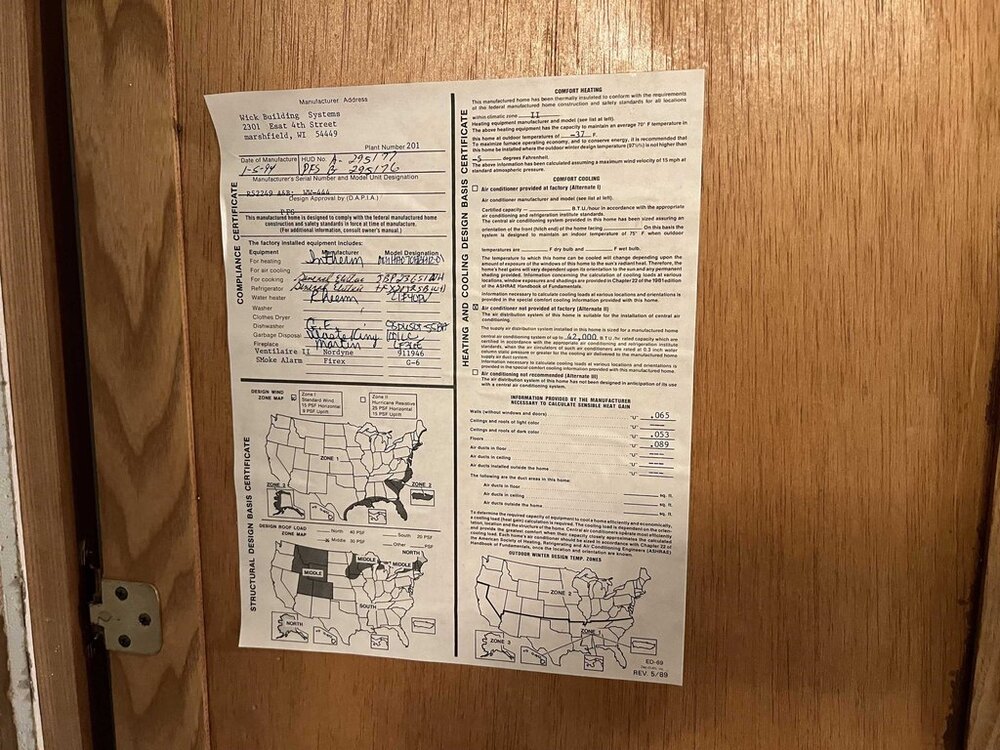 Manufacturer Address
Wick Building Systems
2301 Esat 4th Street
marshfield, WI 54449
Plant Number 201
Date of Manufacture
HUD No. A- 295177
1-5-94
PFS B 295176
Manufacturer's Serial Number and Model Unit Designation
Design Approval by (D.A.P.I.A.)
PFS
This manufactured home is designed to comply with the federal manufactured home
construction and safety standards in force at time of manufacture.
(For additional information, consult owner's manual.)
COMPLIANCE CERTIFICATE
The factory installed equipment includes:
Equipment Manufacturer Model Designation
For heating Intherm
For air cooling
For cooking General Electric
Refrigerator General Electric
Water heater Rheem
Washer
Clothes Dryer
Dishwasher G.E.
Garbage Disposal Waste King
Fireplace Martin
Ventilaire II Nordyne 911946
SMoke Alarm Firex G-6
STRUCTURAL DESIGN BASIS CERTIFICATE
DESIGN WIND
ZONE MAP
Zone I
Standard Wind
15 PSF Horizontal
9 PSF Uplift
Zone II
Hurricane Resistive
25 PSF Horizontal
15 PSF Uplift
ZONE 1
ZONE 2
ZONE 2
DESIGN ROOF LOAD
ZONE MAP
North 40 PSF
South 20 PSF
Middle 30 PSF
Other PSF
NORTH
MIDDLE
MIDDLE
MIDDLE
SOUTH
NORTH
HEATING AND COOLING DESIGN BASIS CERTIFICATE
COMFORT HEATING
This manufactured home has been thermally insulated to conform with the requirements
of the federal manufactured home construction and safety standards for all locations
within climatic zone II
Heating equipment manufacturer and model (see list at left).
The above heating equipment has the capacity to maintain an average 70° F temperature in
this home at outdoor temperatures of -37 F.
To maximize furnace operating economy, and to conserve energy, it is recommended that
this home be installed where the outdoor winter design temperature (97½%) is not higher than
-5 degrees Fahrenheit.
The above information has been calculated assuming a maximum wind velocity of 15 mph at
standard atmospheric pressure.
COMFORT COOLING
Air conditioner provided at factory (Alternate I)
Air conditioner manufacturer and model (see list at left).
Certified capacity B.T.U./hour in accordance with the appropriate
air conditioning and refrigeration institute standards.
The central air conditioning system provided in this home has been sized assuming an
orientation of the front (hitch end) of the home facing On this basis the
system is designed to maintain an indoor temperature of 75° F when outdoor
temperatures are F dry bulb and F wet bulb.
The temperature to which this home can be cooled will change depending upon the
amount of exposure of the windows of this home to the sun's radiant heat. Therefore, the
home's heat gains will vary dependent upon its orientation to the sun and any permanent
shading provided. Information concerning the calculation of cooling loads at various
locations, window exposures and shadings are provided in Chapter 22 of the 1981 edition
of the ASHRAE Handbook of Fundamentals.
Information necessary to calculate cooling loads at various locations and orientations is provided
in the special comfort cooling information provided with this home.
Air conditioner not provided at factory (Alternate II)
The air distribution system of this home is suitable for the installation of central air
conditioning.
The supply air distribution system installed in this home is sized for a manufactured home
central air conditioning system of up to 42,000 B.T.U./hr rated capacity which are
certified in accordance with the appropriate air conditioning and refrigeration institute
standards, when the air circulators of such air conditioners are rated at 0.3 inch water
column static pressure or greater for the cooling air delivered to the manufactured home
supply air duct system.
Information necessary to calculate cooling loads at various locations and orientations is
provided in the special comfort cooling information provided with this manufactured home.
Air conditioning not recommended (Alternate III)
The air distribution system of this home has not been designed in anticipation of its use
with a central air conditioning system.
INFORMATION PROVIDED BY THE MANUFACTURER
NECESSARY TO CALCULATE SENSIBLE HEAT GAIN
Walls (without windows and doors) "U" .065
Ceilings and roofs of light color "U" ---
Ceilings and roofs of dark color "U" .053
Floors "U" .089
Air ducts in floor "U" ---
Air ducts in ceiling "U" ---
Air ducts installed outside the home "U" ---
The following are the duct areas in this home:
Air ducts in floor sq. ft.
Air ducts in ceiling sq. ft.
Air ducts outside the home sq. ft.
To determine the required capacity of equipment to cool a home efficiently and economically,
a cooling load (heat gain) calculation is required. The cooling load is dependent on the orien-
tation, location and the structure of the home. Central air conditioners operate most efficiently
and provide the greatest comfort when their capacity closely approximates the calculated
cooling load. Each home's air conditioner should be sized in accordance with Chapter 22 of
the American Society of Heating, Refrigerating and Air Conditioning Engineers (ASHRAE)
Handbook of Fundamentals, once the location and orientation are known.
OUTDOOR WINTER DESIGN TEMP. ZONES
ZONE 2
ZONE 1
ZONE 3
ED-69
REV. 5/89